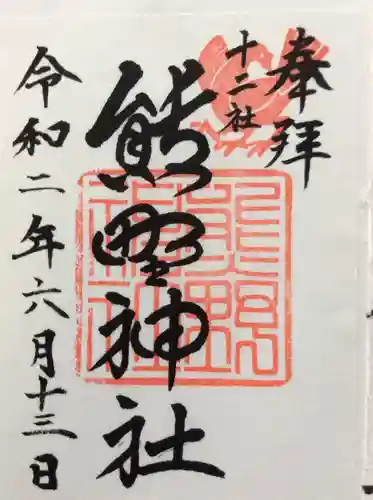 奉拝
十二社
熊野神社
令和二年六月十三日
熊野
神社